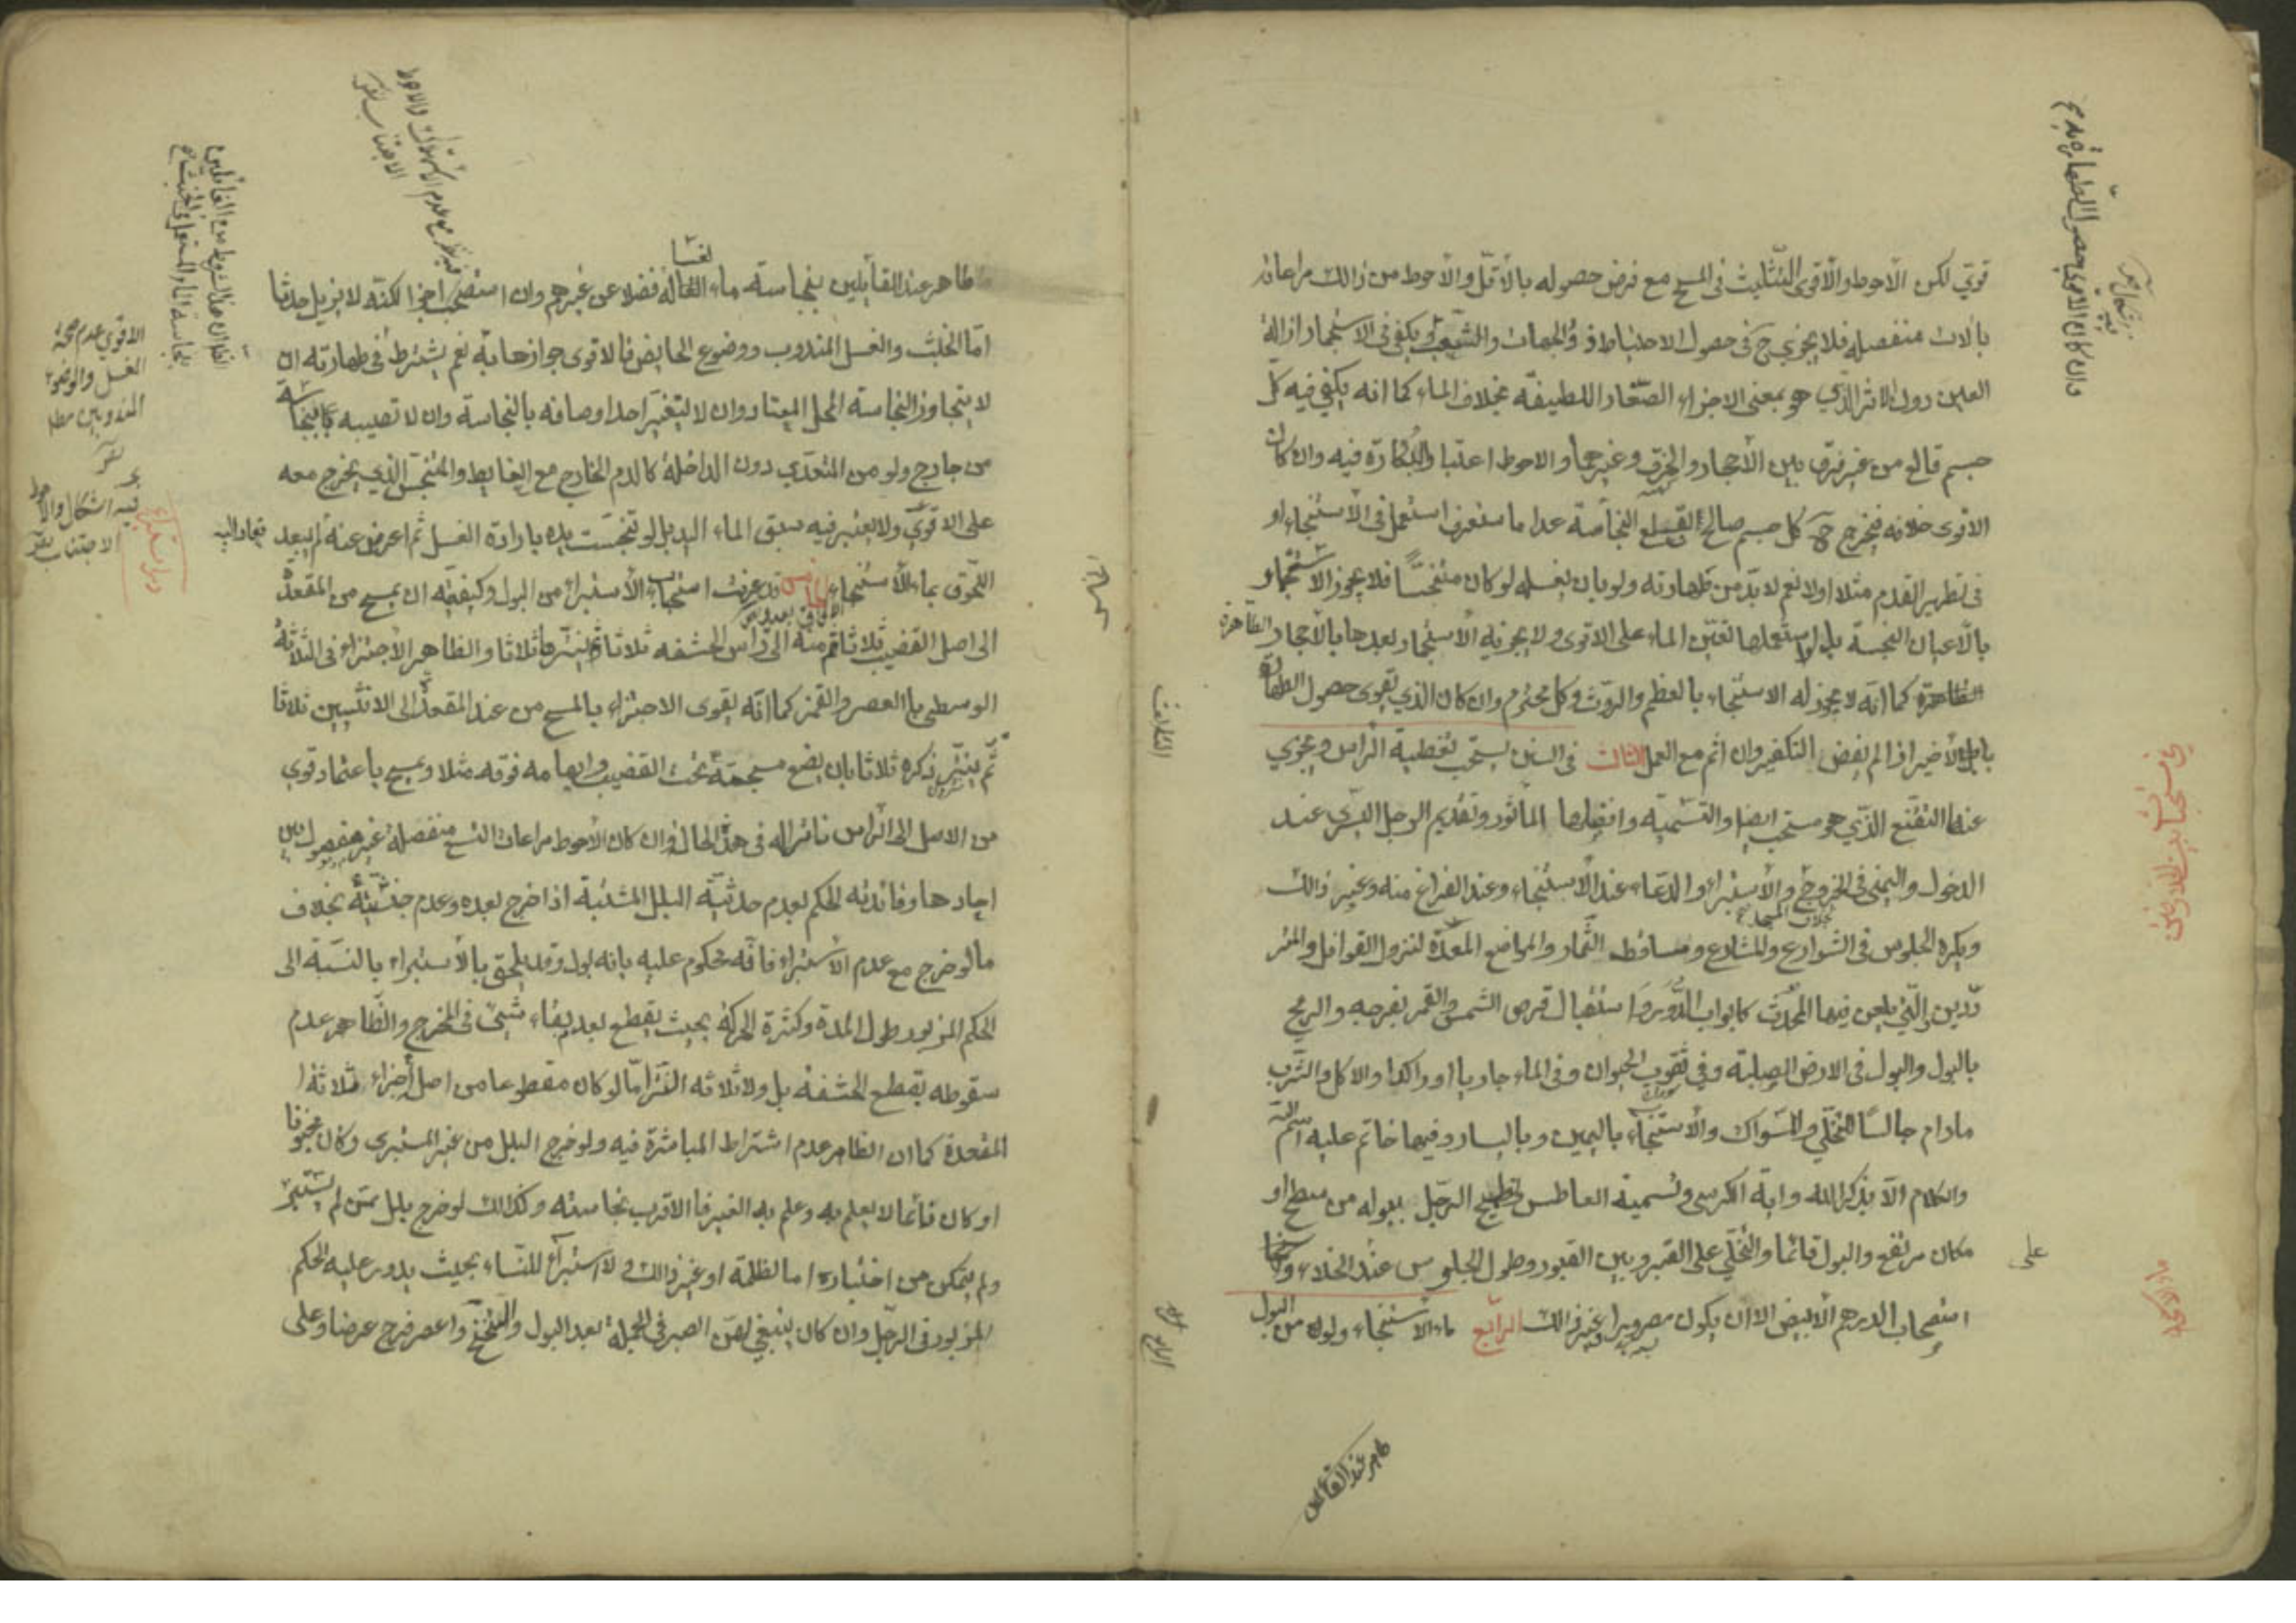 قوي لكن الأحوط والأقوى التثليث في المسح مع فرض حصوله بالأقل والأحوط من ذالك مراعاته
بالات منفصله فلا يجزي ح في حصول الاحتياط ذو الجهات والشعب و يكفي في الاستجمار ازالة
العين دون الاثر الذي هو بمعنى الاجزاء الصغار اللطيفه بخلاف الماء كما انه يكفي فيه كل
جسم قالع من غير فرق بين الأحجار والخرق وغيرهما والاحوط اعتبار البكارة فيه وان كان
الاقوى خلافه فيخرج ح كل جسم صالح لقلع النجاسة عدا ما استعمل في الأستنجاء او
في تطهير القدم مثلا اولا نعم لابد من طهارته ولو بان يغسله لو كان متنجسًا فلا يجوز الاستجمار
بالأعيان النجسة بل لو استعملها تعين الماء على الاقوى ولا يجزيه الأستجمار بعدها بالأحجار الطاهرة
كما انه لا يجوز له الاستنجاء بالعظم والروث وكل محترم وان كان الذي يقوى حصول الطهارة
الأخير اذا لم يقض التكفير وان اثم مع العمل الثالث في السنن يستحب تغطية الراس و يجزي
عنها التقنع الذي هو مستحب ايضا والتسمية وافضلها المأثور وتقديم الرجل اليسرى عند
الدخول واليمنى في الخروج والأستبراء والدعاء عند الأستنجاء وعند الفراغ منه وغير ذالك
ويكره الجلوس في الشوارع والمشارع ومساقط الثمار والمواضع المعدة لنزول القوافل والمتر
ددين والتي يلعن فيها المحدث كابواب الدور و استقبال قرص الشمس والقمر بفرجه والريح
بالبول والبول في الارض الصلبة وفي ثقوب الحيوان وفي الماء جاريا او راكدا والاكل والشرب
مادام جالسًا للتخلي والسواك والأستنجاء باليمين وباليسار وفيها خاتم عليه اسم الله
والكلام الا بذكر الله واية الكرسي وتسمية العاطس وتطميح الرجل ببوله من سطح او
مكان مرتفع والبول قائما والتخلي على القبر وبين القبور وطول الجلوس عند الخلاء
استصحاب الدرهم الأبيض الا ان يكون مصرورا وغير ذالك الرابع ماء الاستنجاء ولو من البول
على
طاهر عند القائلين بنجاسة ماء الغسالة فضلا عن غيرهم وان استصحب اجزا لكنه لا يزيل حدثا
اما الخبث والغسل المندوب ووضوء الحايض فالاقوى جوازها به نعم يشترط في طهارته ان
لا يتجاوز النجاسة المحل المعتاد وان لا يتغير احد اوصافه بالنجاسة وان لا تصيبه نجاسة
من خارج ولو من المتعدي دون الداخلة كالدم الخارج مع الغايط والمتنجس الذي يخرج معه
على الاقوى ولا يعتبر فيه سبق الماء اليد بل لو تنجست يده بارادة الغسل ثم اعرض عنه ثم بعد فعاد اليه
التحق بماء الأستنجاء الخامس قد عرفت استحباب الأستبراء من البول وكيفيته ان يمسح من المقعدة
الى اصل القضيب ثلاثا ثم منه الى راس الحشفه ثلاثا ثم ينترها ثلاثا والظاهر الأجتزاء في الثلاثة
الوسطى بالعصر والغمز كما انه يقوى الاجتزاء بالمسح من عند المقعدة الى الانثيين ثلاثا
ثم ينتر ذكره ثلاثا بان يضع مسبحته تحت القضيب وابهامه فوقه مثلا ويمسح باعتماد قوي
من الاصل الى الراس ناترا له في هذا الحال وان كان الأحوط مراعات التسع منفصلة غير مفصول بين
احادها وفائدته الحكم بعدم حدثية البلل المشتبه اذا خرج بعده وعدم خبثيته بخلاف
ما لو خرج مع عدم الأستبراء فانه محكوم عليه بانه بول وقد يلحق بالأستبراء بالنسبة الى
الحكم المزبور طول المدة وكثرة الحركة بحيث يقطع بعد بقاء شيئ في المخرج والظاهر عدم
سقوطه بقطع الحشفه بل ولا ثلاثه النتر اما لو كان مقطوعا من اصل اجزاء ثلاثة
المقعدة كما ان الظاهر عدم اشتراط المباشرة فيه ولو خرج البلل من غير المستبري وكان مجنونا
او كان نائما لا يعلم به وعلم به الغير فالاقرب نجاسته وكذالك لو خرج بلل ممن لم يستبرء
ولم يتمكن من اختباره اما لظلمة او غير ذالك و لا استبراء للنساء بحيث يدور عليه الحكم
المزبور في الرجل وان كان ينبغي لهن الصبر في الجملة بعد البول والتنحنح وعصر فرج عرضا وعلى
الاقوى عدم صحة
الغسل والوضوء
المندوبين مطلقا
فيه اشكال والاحوط
الاجتناب